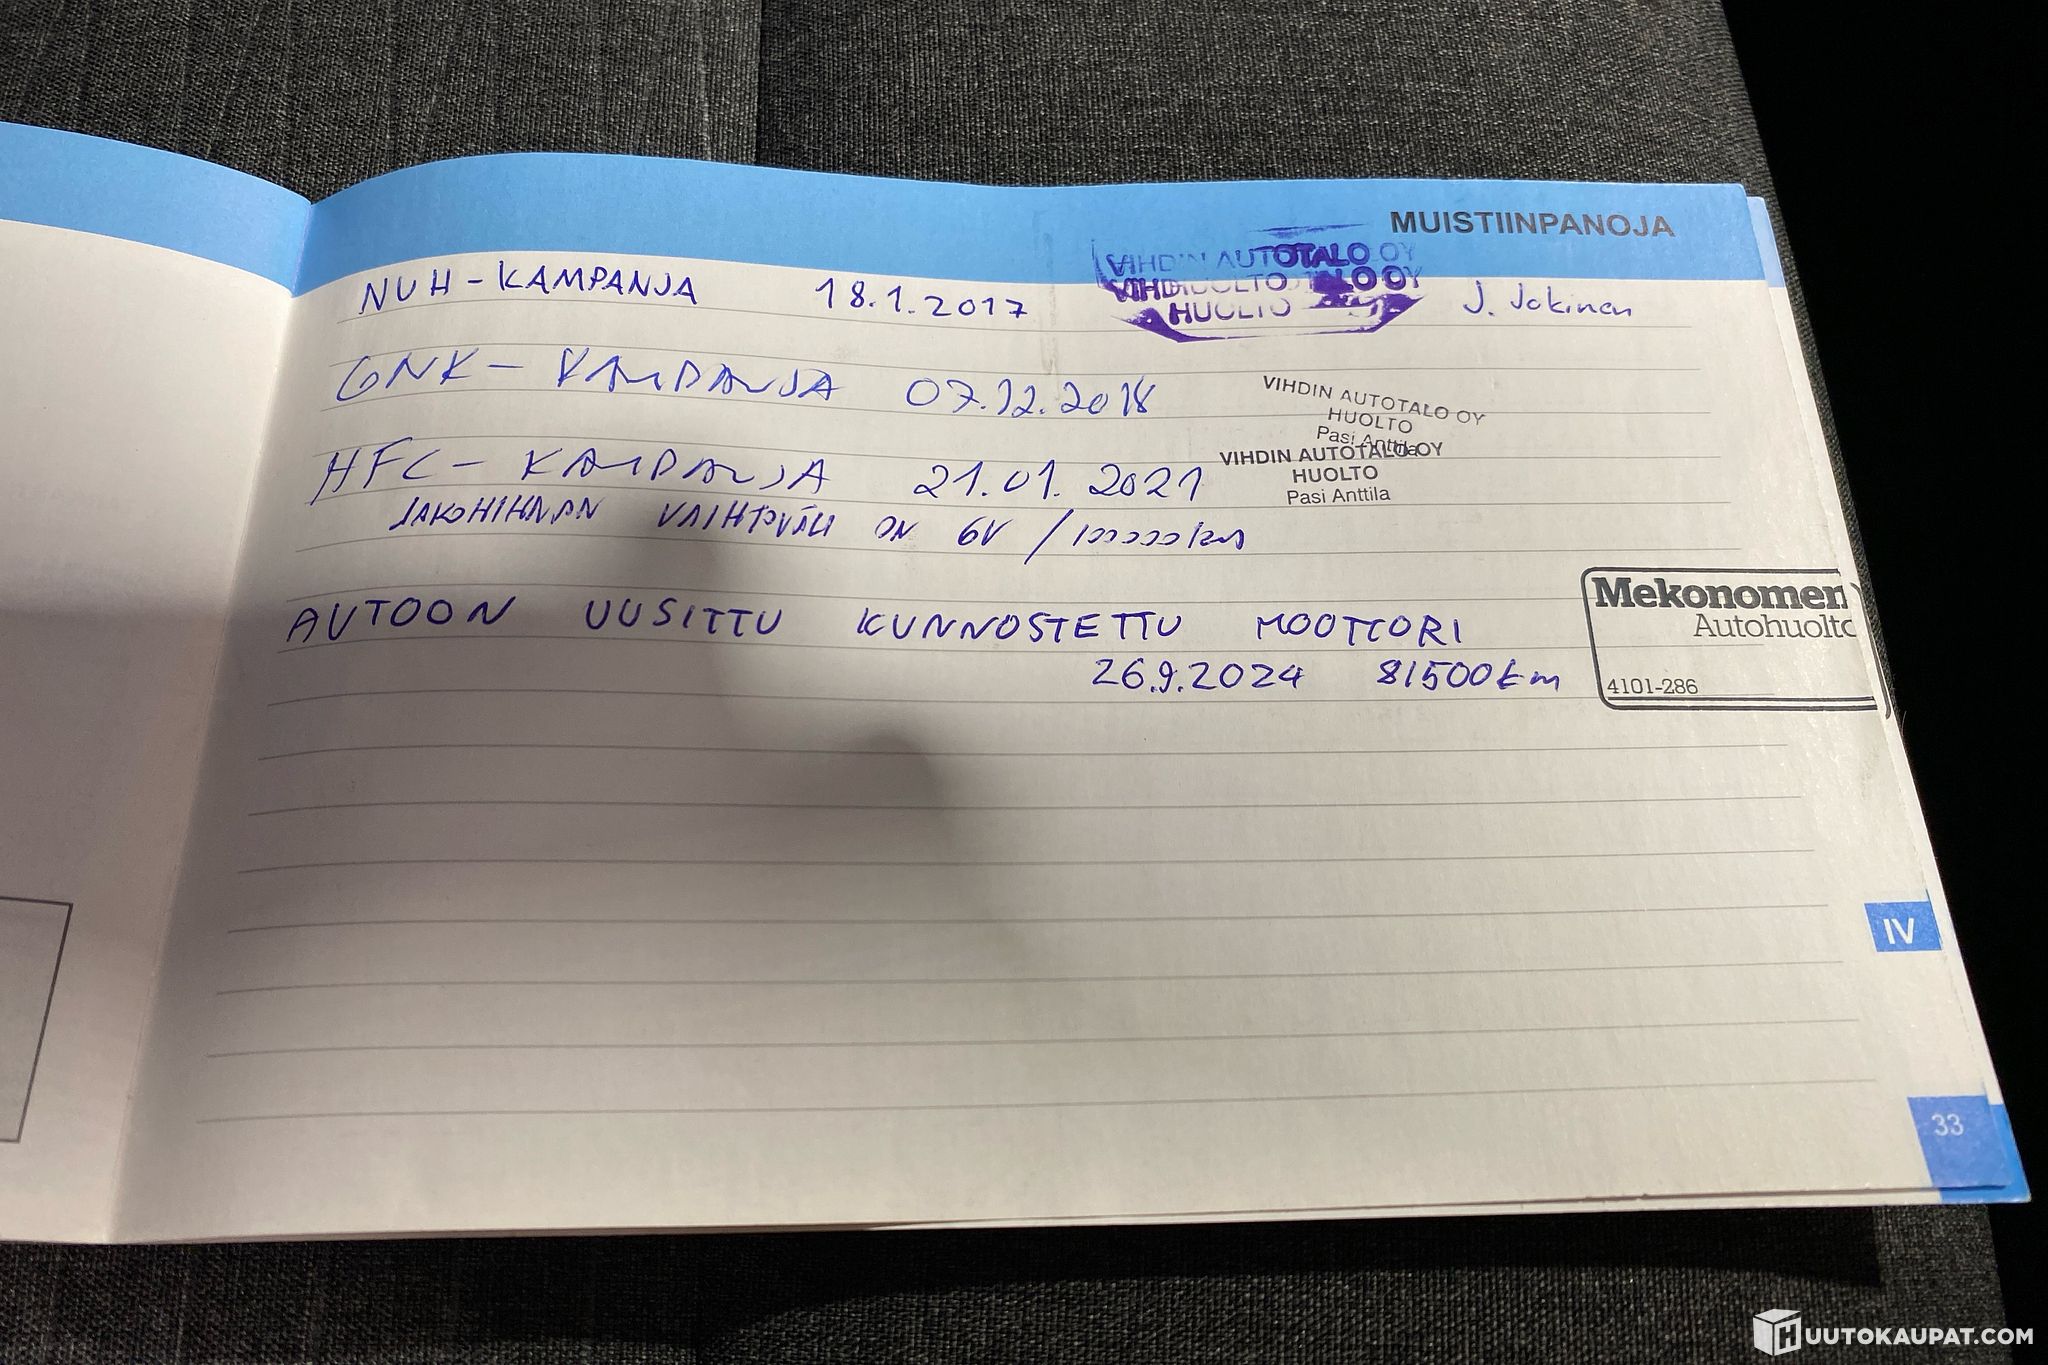 MUISTIINPANOJA
NUH-KAMPANJA 18.1.2017 VIHDIN AUTOTALO OY HUOLTO J. Jokinen
GNK- KAMPANJA 07.12.2018
VIHDIN AUTOTALO OY
HUOLTO
Pasi Anttila
HFC- KAMPANJA 21.01.2021
VIHDIN AUTOTALO OY
HUOLTO
Pasi Anttila
JAKOHIHNAN VAIHTOVÄLI ON 6V / 100000km
AUTOON UUSITTU KUNNOSTETTU MOOTTORI
26.9.2024 81500km
Mekonomen
Autohuolto
4101-286
IV
33
HUUTOKAUPAT.COM